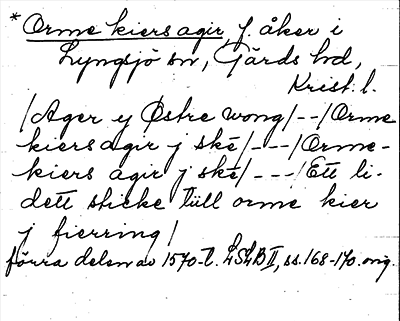 * Orme kiers agir, f. åker i
Lyngsjö sn, Gärds hd,
Krist. l.
/Ager ej Østre wong/--/Orme
kiers agir j ske/---/Orme-
kiers agir j ske/---/Ett li-
dett sticke till orme kier
j fierring/
förra delen av 1570-t. LSLB II, ss. 168-170. orig.